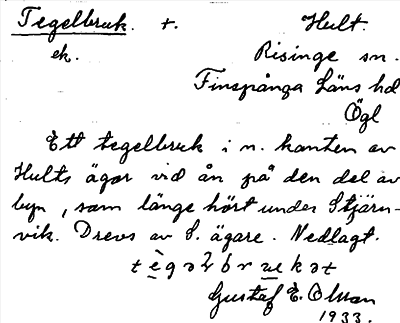 Tegelbruk. +. Hult.
ek. Risinge sn.
Finspånga läns hd
Ögl
Ett tegelbruk i n. kanten av
Hults ägor vid ån på den del av
byn, som länge hört under Stjärn-
vik. Drevs av S. ägare. Nedlagt.
Gustaf E. Olsson
1933.